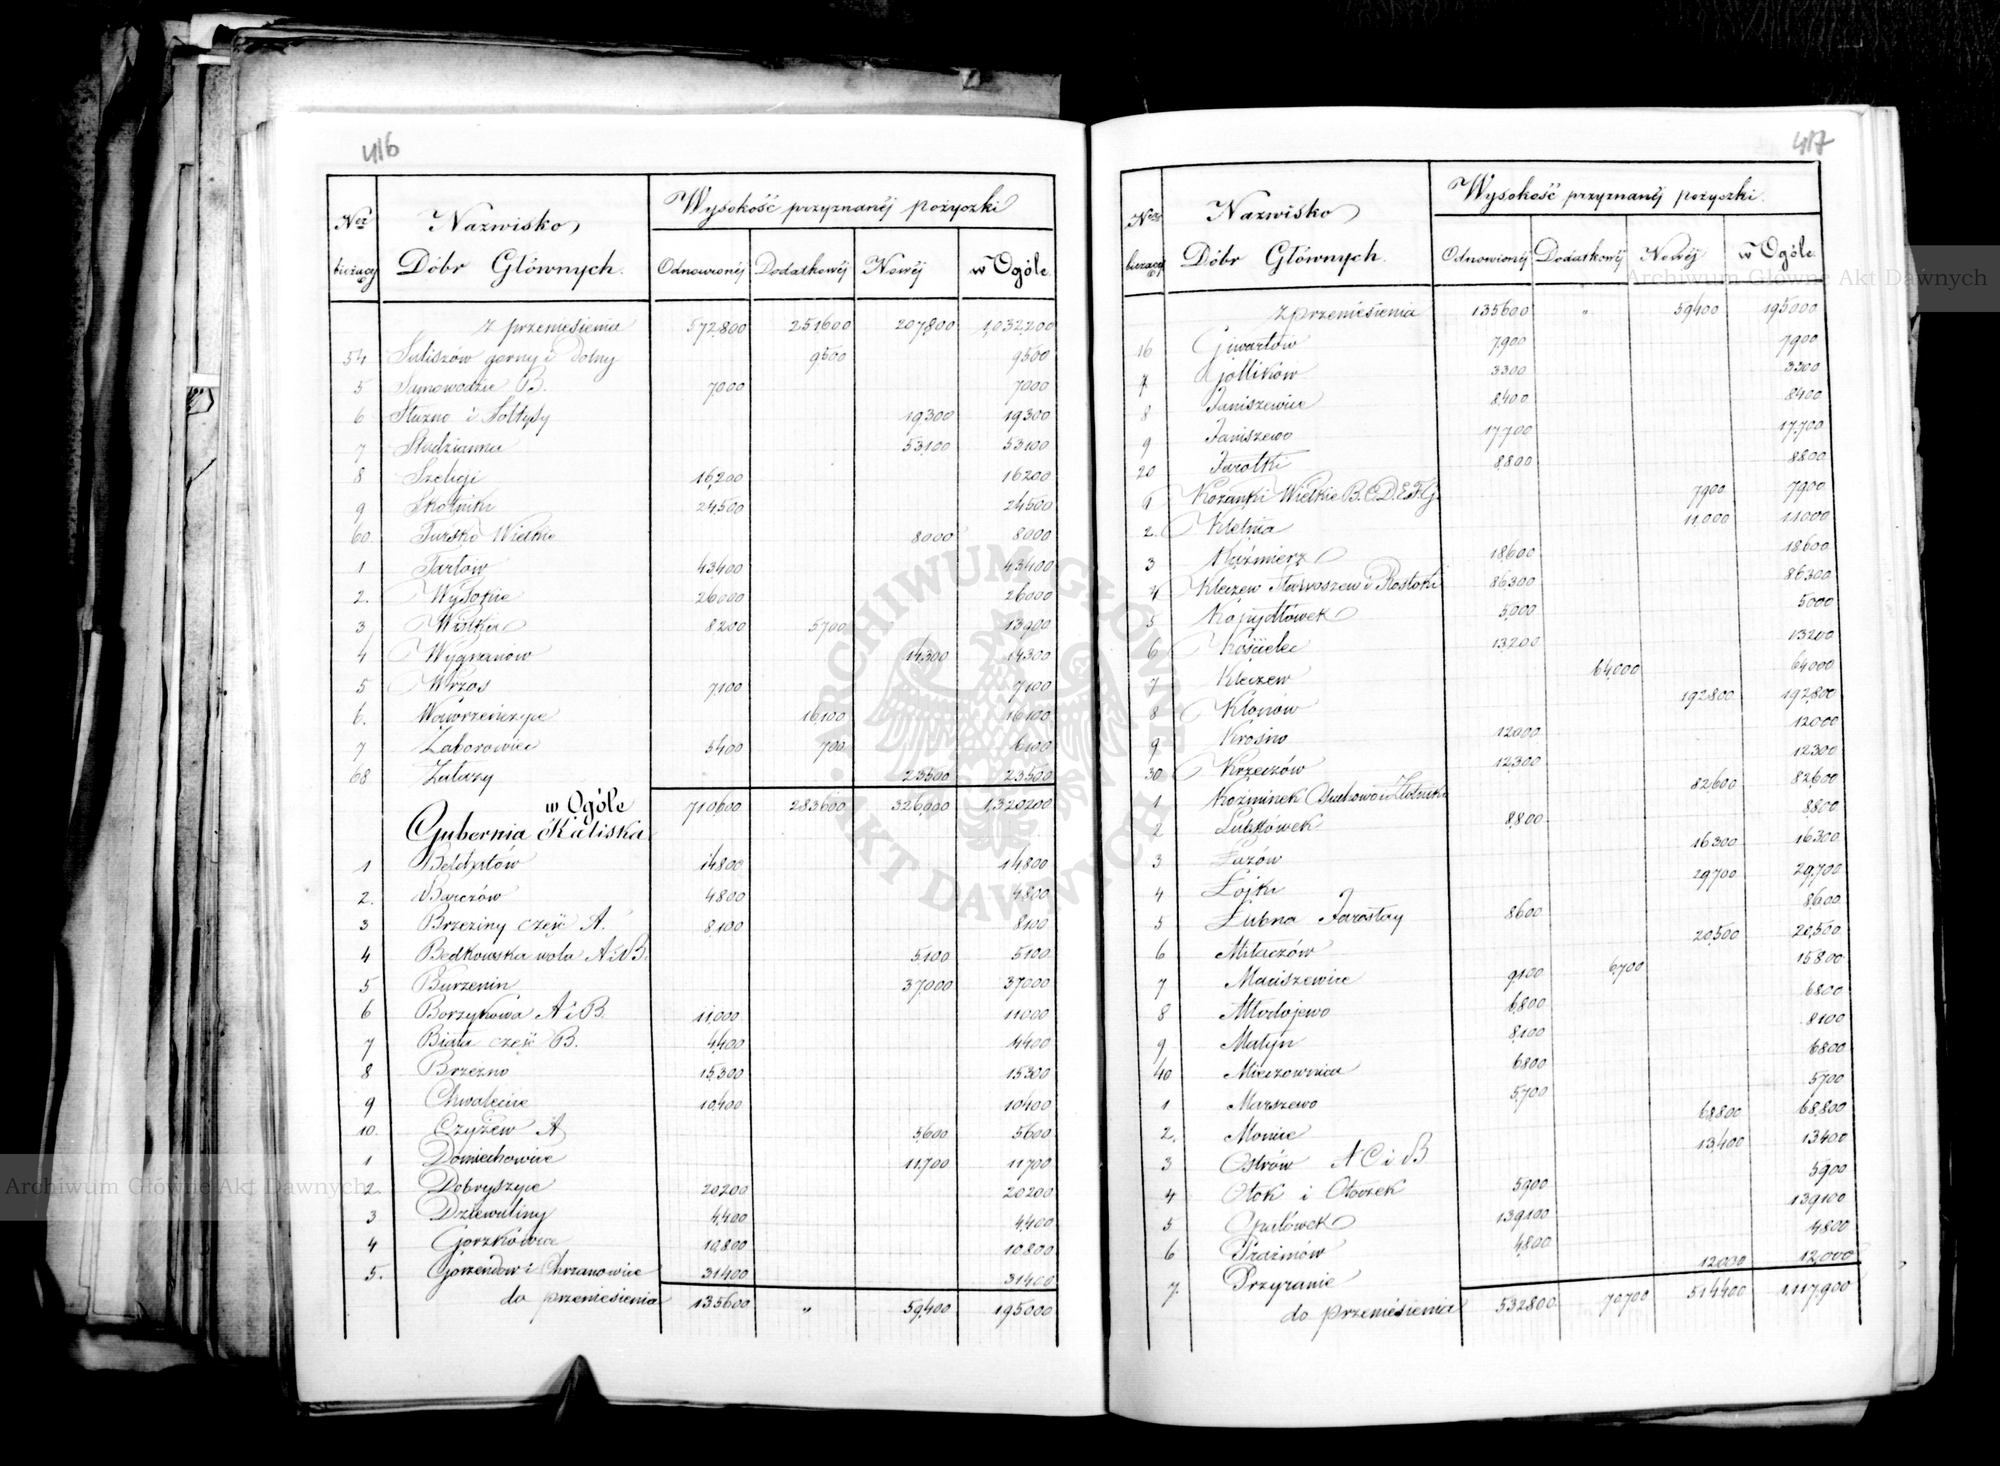 416
Nr bieżący Nazwisko Dóbr Głównych. Wysokość przyznanéj pożyczki
Odnowionéj Dodatkowéj Nowéj w Ogóle
z przeniesienia 572,800 251600 207,800 1,032,200
54 Suliszów gorny i Dolny 9500 9500
5 Samowodzie B. 7000 7000
6 Stużno i Sołtysy 19300 19300
7 Studzianna 53,100 53100
8 Szeligi 16,200 16200
9 Skotniki 24,500 24500
60 Tursko Wielkie 8000 8000
1 Tarłow 43,400 43400
2. Wysokie 26000 26000
3 Wólka 8200 5700 13900
4 Wygnanow 14,300 14300
5 Wrzos 7,100 7,100
6. Wawrzeńczyce 16100 16100
7 Zaborowiec 5400 700 6100
68 Zalazy 23500 23500
w Ogóle 710,600 283600 326,000 1,320,200
Gubernia Kaliska
1 Bełchatów 14800 14,800
2. Barczów 4800 4800
3 Brzeziny część A. 8,100 8100
4 Bedkowska wola A i B. 5,100 5100
5 Burzenin 37,000 37000
6 Borzykowa A i B. 11,000 11000
7 Biała część B. 4,400 4400
8 Brzezno 15,300 15300
9 Chwalęcice 10,400 10400
10. Czyżew A 5,600 5600
1 Domiechowice 11,700 11700
2. Dobryszyce 20200 20200
3 Dziewuliny 4,400 4,400
4 Gorzkowice 10,800 10800
5. Gorzendow i Chrzanowice 31400 31400
do przeniesienia 135600 " 59,400 195000
417
Nr bieżący Nazwisko Dóbr Głównych. Wysokość przyznanéj pożyczki.
Odnowionéj Dodatkowéj Nowéj w Ogóle
z przeniesienia 135600 " 59400 195000
16 Giwartów 7900 7900
7 Gollików 3300 3300
8 Janiszewice 8,400 8400
9 Janiszewo 17700 17,700
20 Jarotki 8,800 8800
1 Kożanki Wielkie B.C.D.E.F.G. 7900 7900
2. Kletnia 11,000 11000
3 Kaźmierz 18,600 18600
4 Kleczew Sławoszew i Roztoki 86,300 86300
5 Kopydłówek 5,000 5000
6 Kościelec 13,200 13200
7 Kleczew 64,000 64000
8 Kłonów 192800 192,800
9 Krosno 12000 12000
30 Krzeczów 12,300 12300
1 Koźminek Osuchowo i Złotniki 82600 82,600
2 Lutkówek 8,800 8800
3 Łazów 16300 16300
4 Łojki 29700 29,700
5 Łubna Jarosłay 8600 8,600
6 Miłaczów 20,500 20,500
7 Maciszewice 9,100 6,700 15800
8 Młodojewo 6,800 6800
9 Małyn 8,100 8100
40 Mieczownica 6800 6800
1 Marszewo 5,700 5700
2. Monice 68,800 68,800
3 Ostrów A C i B 13,400 13400
4 Otok i Otoczek 5,900 5900
5 Opatówek 139,100 139100
6 Prażmów 4,800 4800
7. Przyranie 12,000 12,000
do przeniesienia 532800 70,700 514400 1,117,900
Archiwum Główne Akt Dawnych
Archiwum Główne Akt Dawnych
ARCHIWUM GŁÓWNE AKT DAWNYCH